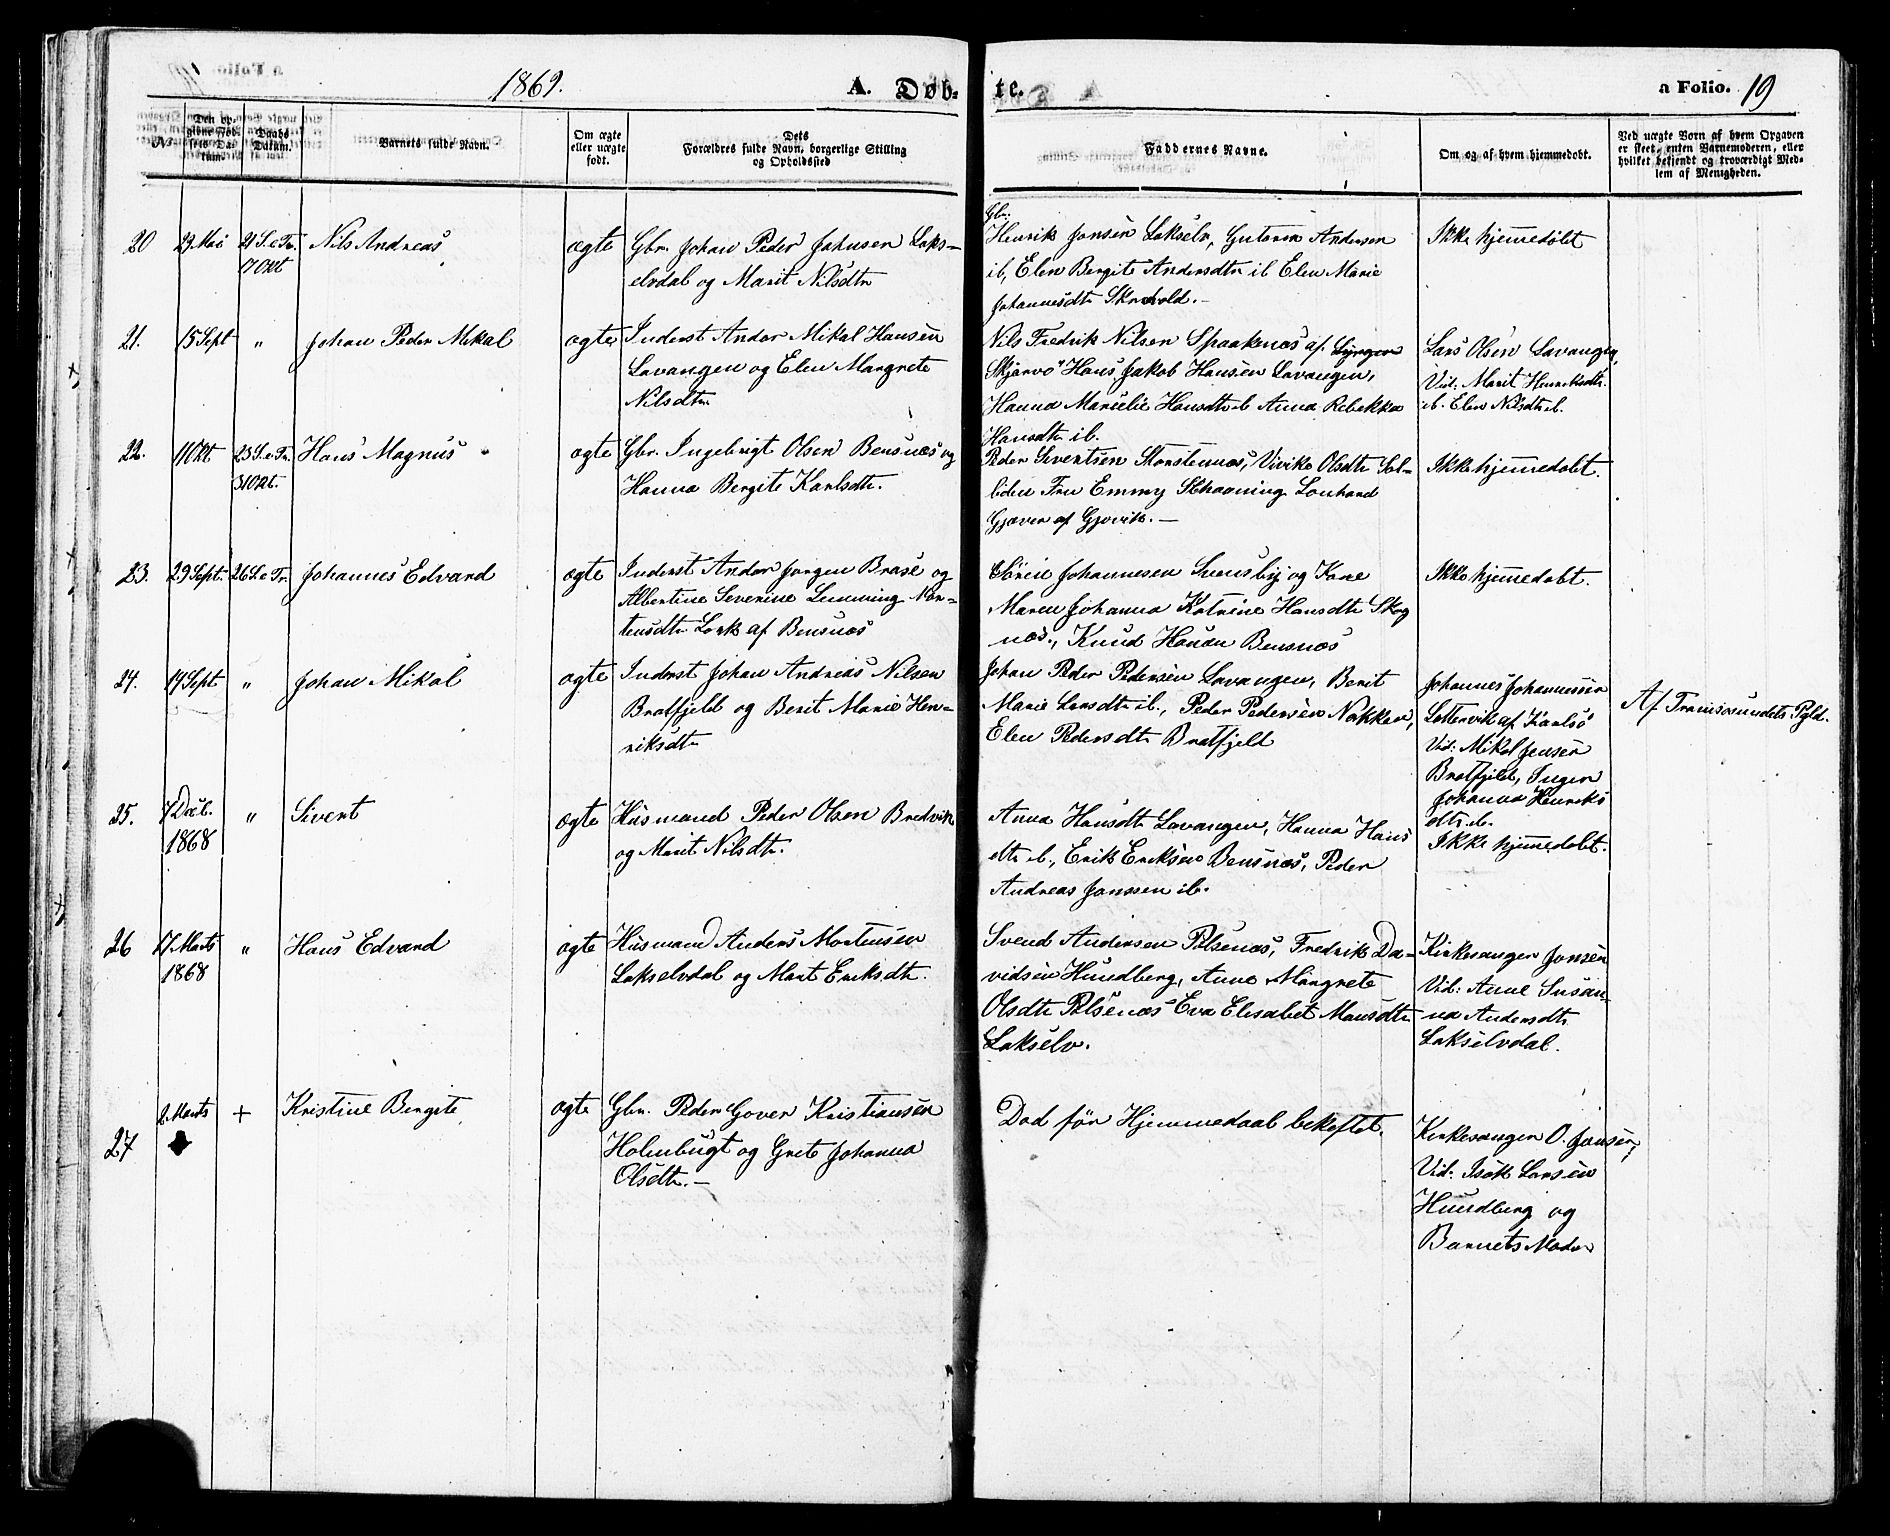 1869.
A. Døb-
te.
a Folio. 19
No
Den op-
givne Fød-
sels Da-
tum.
Daabs
Datum.
Barnets fulde Navn.
Om ægte
eller uægte
født.
Dets
Forældres fulde Navn, borgerlige Stilling
og Opholdssted
Faddernes Navne.
Om og af hvem hjemmedøbt.
Ved uægte Børn af hvem Opgaven
er skeet, enten Barnemoderen, eller
hvilket bekjendt og troværdigt Med-
lem af Menigheden.
20
29 Mai
21 S. e. Tr.
17 Okt
Nils Andreas
ægte
Gbr. Johan Peder Johnsen Laks-
elvdal og Marit Nilsdtr
Gbr.
Henrik Jonsen Lakselv, Gutorm Andersen
ib, Elen Bergite Andersdtr ib Elen Marie
Johannesdtr
Ikke hjemedøbt
21.
15 Sept
"
Johan Peder Mikal
ægte
Inderst Andor Mikal Hansen
Lavangen og Elen Margrete
Nilsdtr
Nils Fredrik Nilsen Spaaknæs af Lyngen
Skjærvø Hans Jakob Hansen Lavangen,
Hanna Marselie Hansdtr ib Anna Rebekka
Hansdtr ib.
Lars Olsen Lavangen,
Vid: Marit Henriksdtr.
ib. Elen Nilsdtr ib.
22.
1 Okt
23 S. e. Tr.
31 Okt.
Hans Magnus
ægte
Gbr. Ingebrigt Olsen Bensnæs og
Hanna Bergite Karlsdtr.
Peder Siventsen Storstennæs, Vivike Olsdtr Sol-
liden Fru Emmy Schaaning Lonhard
Gjæver af Gjøvik. —
Ikke hjemedøbt.
23.
29 Sept.
26 S. e. Tr.
Johannes Edvard
ægte
Inderst Andor Jørgen Brose og
Albertine Severine Lemming Mor-
tensdtr Lork af Bensnæs
Sørin Johannesen Svensby og Kone
Maren Johanna Katrine Hansdtr Skog
næs., Knud Hansen Bensnæs
Ikke hjemedøbt.
24.
14 Sept
"
Johan Mikal
ægte
Inderst Johan Andreas Nilsen
Bratfjeld og Berit Marie Hen-
riksdtr
Johan Peder Pedersen Lavangen, Berit
Marie Larsdtr ib., Peder Pedersen Nakken,
Elen Pedersdtr Bratfjeld
Johannes Johannessen
Lattervik af Karlsø
Vid: Mikal Jensen
Bratfjeld, Inger
Johanna Henriks
dtr. ib.
Af Tromsøsundets Pgld.
25.
7 Decb.
1868
"
Sivert
ægte
Husmand Peder Olsen Bredvik
og Marit Nilsdtr.
Anna Hansdtr Lavangen, Hanna Hans
dtr ib., Erik Eriksen Bensnæs, Peder
Andreas Janssen ib.
Ikke hjemedøbt.
26
17 Marts
1868
"
Hans Edvard
ægte
Husmand Anders Mortensen
Lakselvdal og Marit Eriksdtr.
Svend Andersen Pølsenæs, Fredrik Da-
vidsen Hundberg, Anne Margrete
Olsdtr Pølsenæs Eva Elisabet Monsdtr
Lakselv.
Kirkesanger Jonsen
Vid: Anne Susan-
na Andersdtr
Lakselvdal.
27
2 Marts
+
Kristine Bergite
ægte
Gbr. Peder Gover Kristiansen
Holmbugt og Grete Johanna
Olsdtr. —
Død før Hjemmedaab bekæftet.
Kirkesanger O. Jonsen,
Vid: Isak Larsen
Hundberg og
Barnets Moder